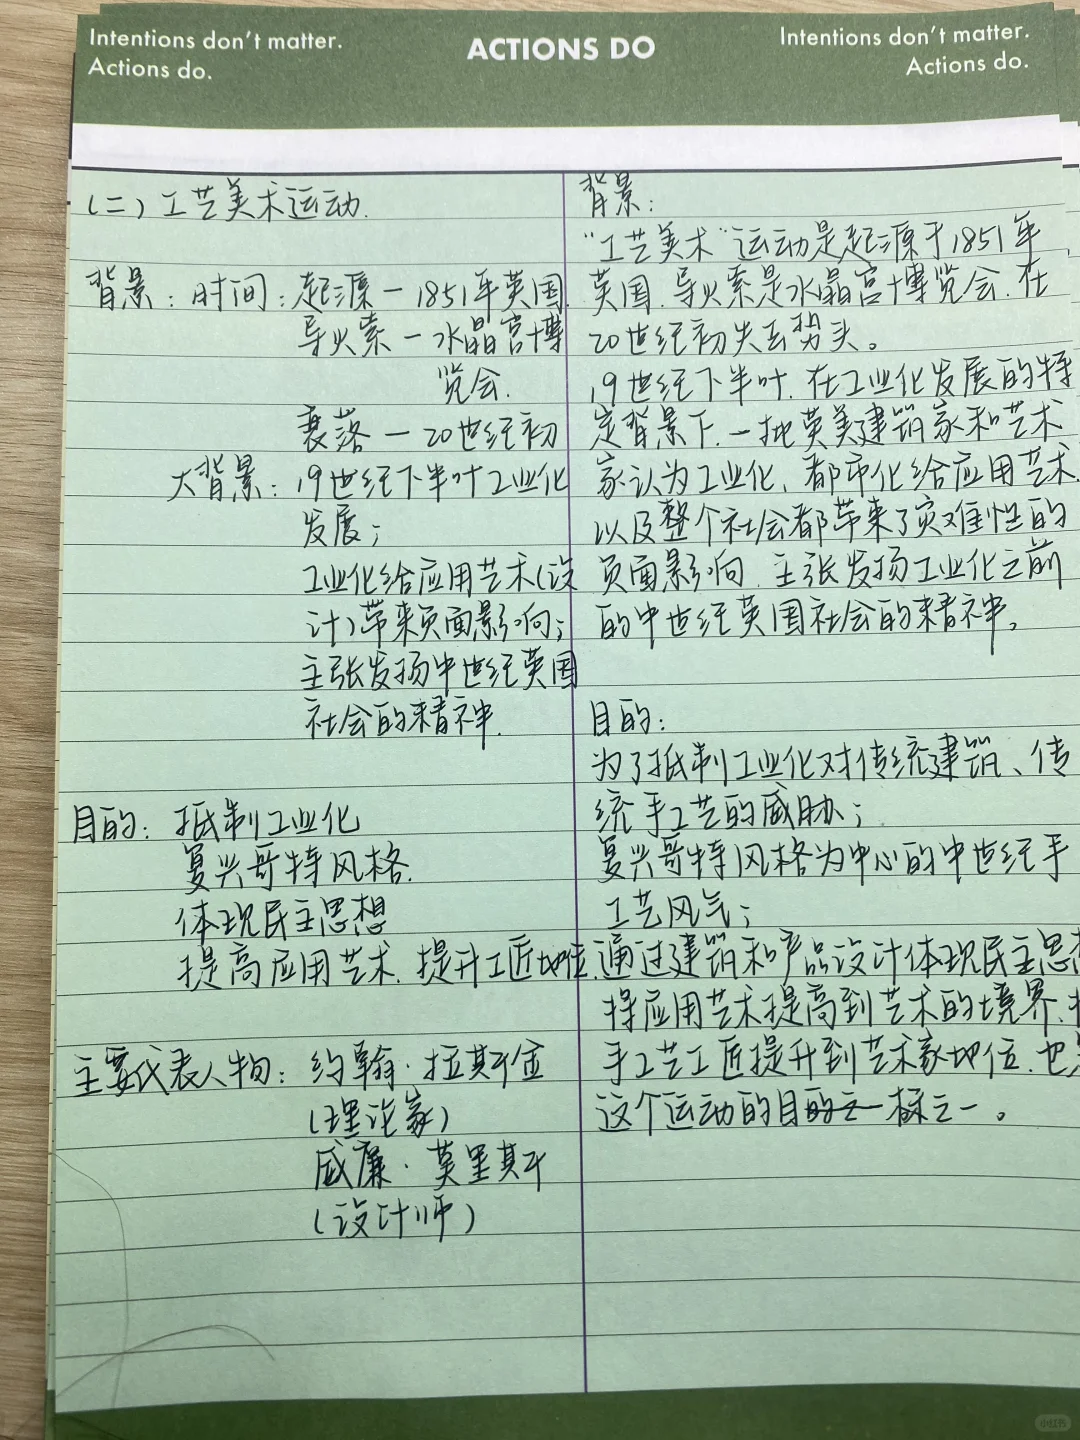 Intentions don't matter.
Actions do.
ACTIONS DO
Intentions don't matter.
Actions do.
(二) 工艺美术运动.
背景: 时间: 起源 — 1851年英国.
导火索 — 水晶宫博
览会.
衰落 — 20世纪初
大背景: 19世纪下半叶工业化
发展;
工业化给应用艺术(设
计)带来负面影响;
主张发扬中世纪英国
社会的精神.
目的: 抵制工业化
复兴哥特风格.
体现民主思想
提高应用艺术. 提升工匠地位.
主要代表人物: 约翰·拉斯金
(理论家)
威廉·莫里斯
(设计师)
背景:
“工艺美术”运动是起源于1851年,
英国. 导火索是水晶宫博览会. 在
20世纪初失去势头。
19世纪下半叶. 在工业化发展的特
定背景下. 一批英美建筑家和艺术
家认为工业化、都市化给应用艺术.
以及整个社会都带来了灾难性的
负面影响. 主张发扬工业化之前
的中世纪英国社会的精神。
目的:
为了抵制工业化对传统建筑、传
统手工艺的威胁;
复兴哥特风格为中心的中世纪手
工艺风气;
通过建筑和产品设计体现民主思
将应用艺术提高到艺术的境界.
手工艺工匠提升到艺术家地位. 也
这个运动的目的之一标之一。
小红书